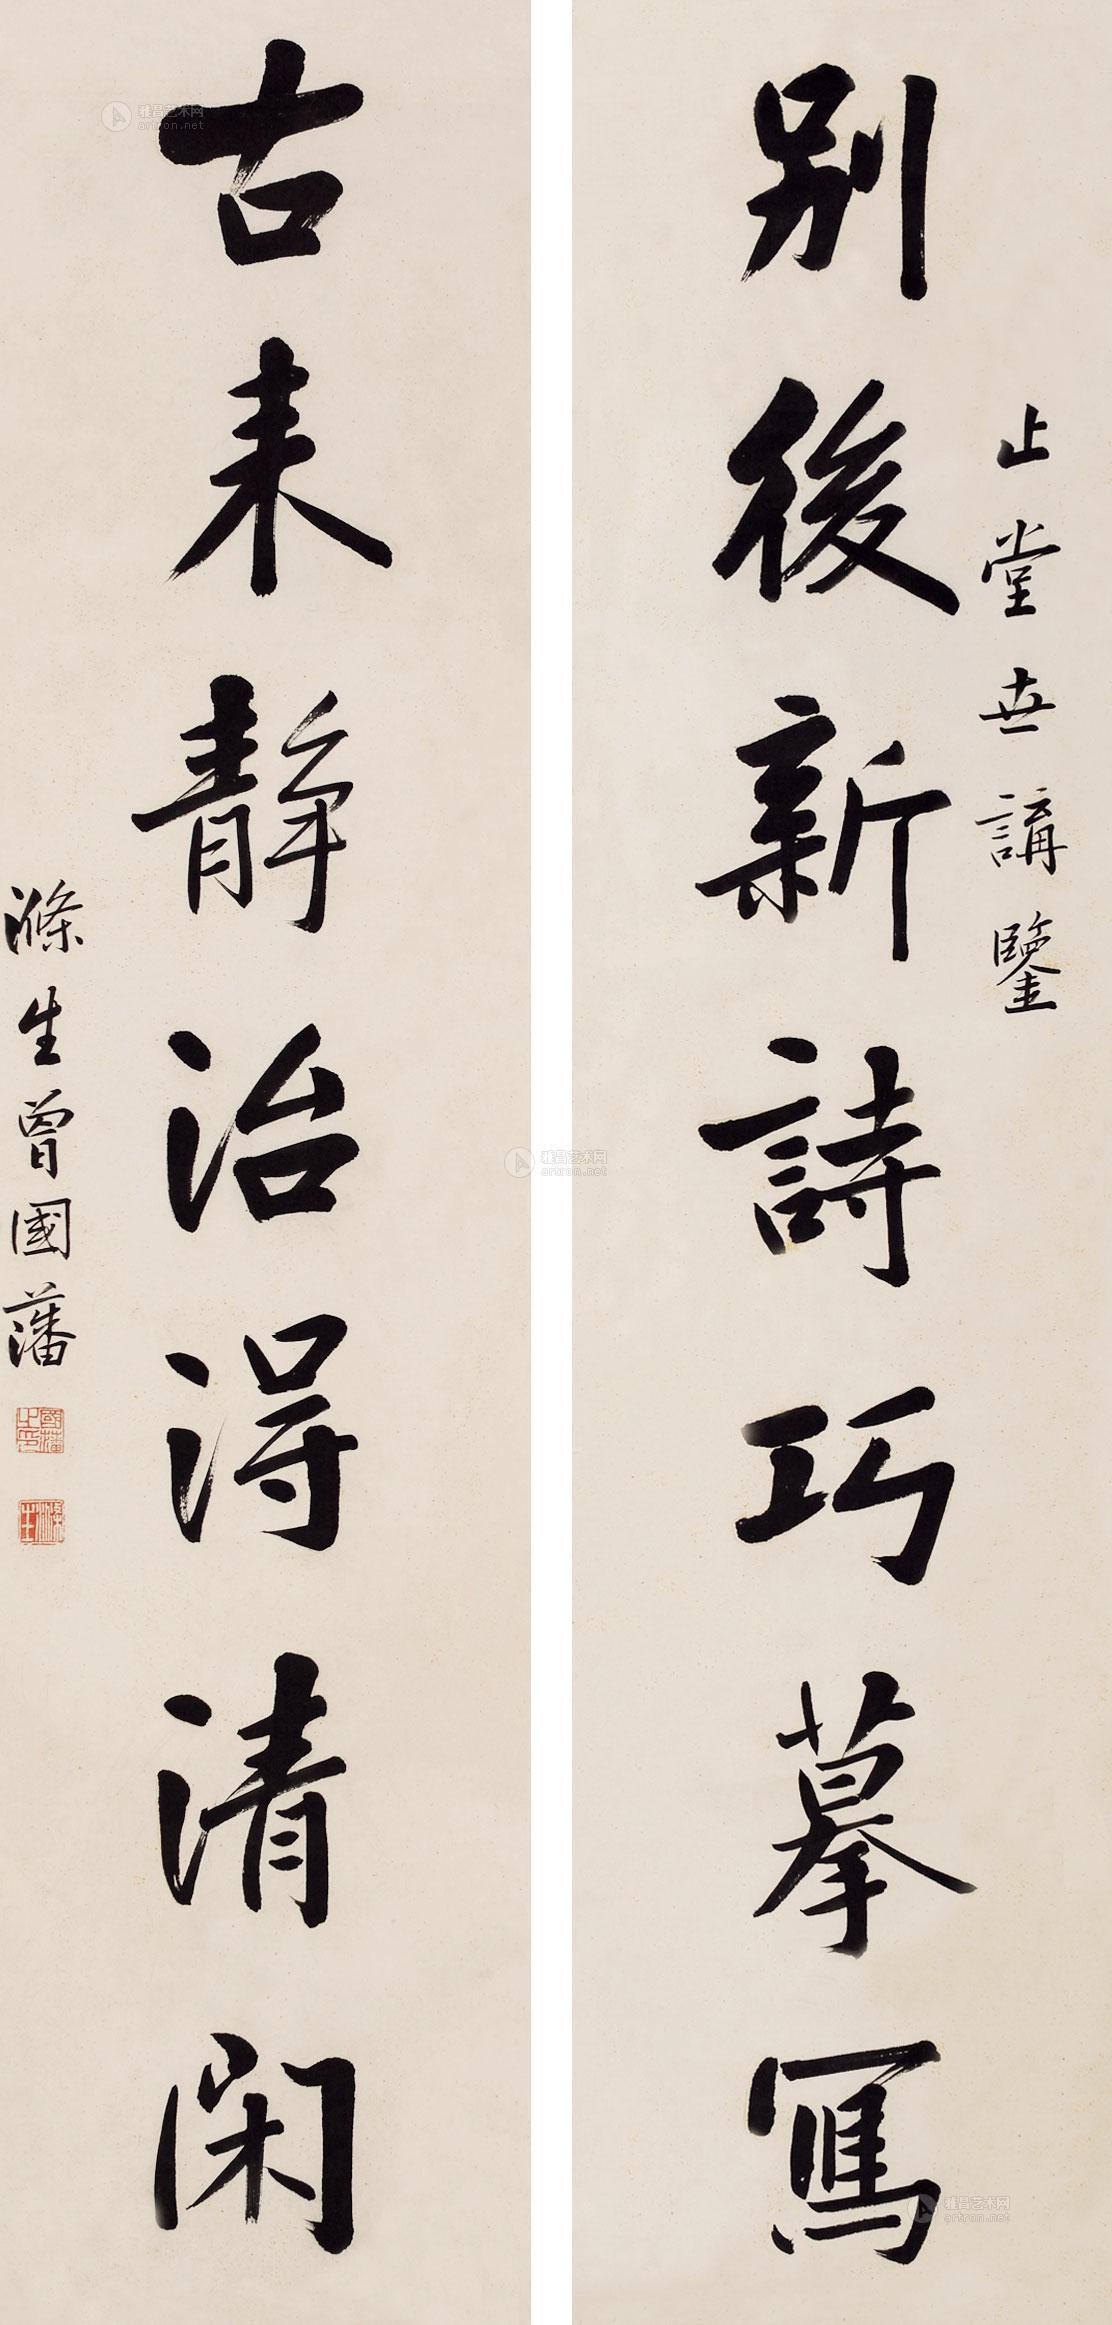 止堂世講鑒
別後新詩巧摹寫
古来靜治得清閑
滌生曾國藩
國藩之印
滌生
雅昌艺术网
artron.net
雅昌艺术网
artron.net
雅昌艺术网
artron.net